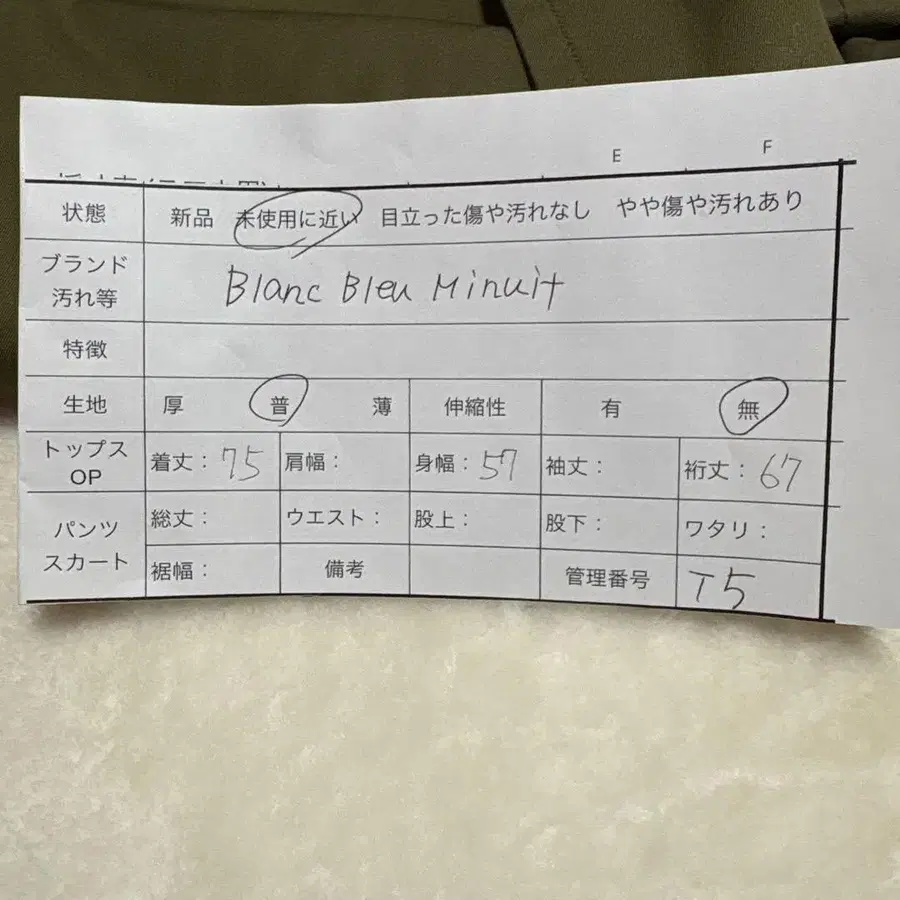 E F
状態 新品 未使用に近い 目立った傷や汚れなし やや傷や汚れあり
ブランド
汚れ等
Blanc Bleu Minuit
特徴
生地 厚 普 薄 伸縮性 有 無
トップス
OP
着丈: 75 肩幅: 身幅: 57 袖丈: 裄丈: 67
パンツ
スカート
総丈: ウエスト: 股上: 股下: ワタリ:
裾幅: 備考 管理番号 T5